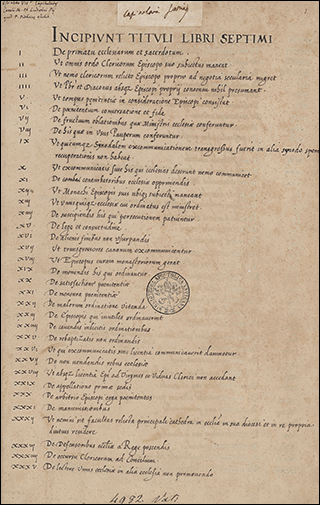 INCIPIVNT TITVLI LIBRI SEPTIMI
I De primatu ecclesiarum et sacerdotum
II Ut omnis ordo Clericorum Episcopo suo subiectus maneat
III Ut nemo clericorum relicto Episcopo proprio ad negotia secularia migret
IIII Ut Pbr et Diaconus absq; Episcopi proprij consensu nihil presumant
V Ut tempus penitentiae in consideratione Episcopi consistat
VI De penitentum conversatione et fide
VII De fructuum oblationibus quae Ministris ecclesiae conferuntur
VIII De his quae in usus Pauperum conferuntur
IX Ut quicumq; Synodalem excommunicationem transgressus fuerit in alia synodo spem
recuperationis non habeat
X Ut excommunicatis sive his qui ecclesias deserunt nemo communicet
XI De
XII Ut Monachi Episcopis suis ubiq; subiecti maneant
XIII Ut unusquisq;
XIIII De suscipiendis his qui persecutionem patiuntur
XV De lege et consuetudine
XVI De alienis finibus non usurpandis
XVII Ut transgressores canonum excommunicentur
XVIII Ut Episcopi curam monasteriorum gerant
XIX De monendis his qui ordinantur
XX De satisfactione penitentiae
XXI De mensura penitentiae
XXII De malorum ordinatione vitanda
XXIII De Episcopis qui inutiles ordinaverint
XXIIII De cavendis inlicitis ordinationibus
XXV De rebaptizatis non ordinandis
XXVI Ut qui excommunicatis sine licentia communicaverit damnetur
XXVII De non vendendis rebus ecclesiae
XXVIII Ut absq; licentia Epi ad Virgines vel Viduas Clerici non accedant
XXIX De appellatione primae sedis
XXX De arbitrio Episcopi erga penitentes
XXXI De manumissionibus
XXXII Ut nemini sit facultas relicta principali cathedra in
residere
XXXIII De Defensoribus ecclesiae a Rege poscendis
XXXIIII De occursu Clericorum ad Concilium
XXXV De lectore unius ecclesiae in alia ecclesia non promovendo
4982 Vat.